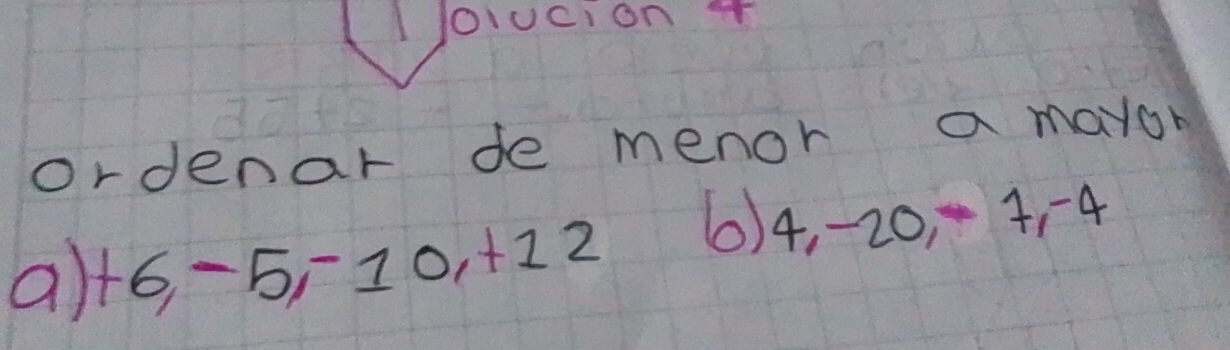 Solución 4
ordenar de menor a mayor
a)+6,-5,-10,+12 b)4,-20,-7,-4